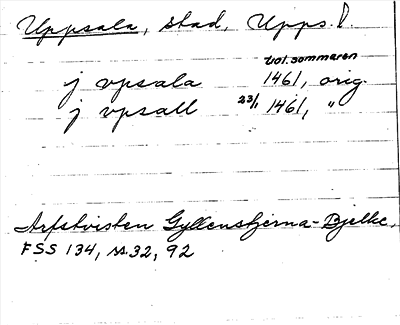 Uppsala, stad, Upps. l.
tol. sommaren
j vpsala 1461, orig.
j vpsall 23/1 1461, "
Arfstvisten Gyllenstjerna-Bjelke,
FSS 134, ss. 32, 92